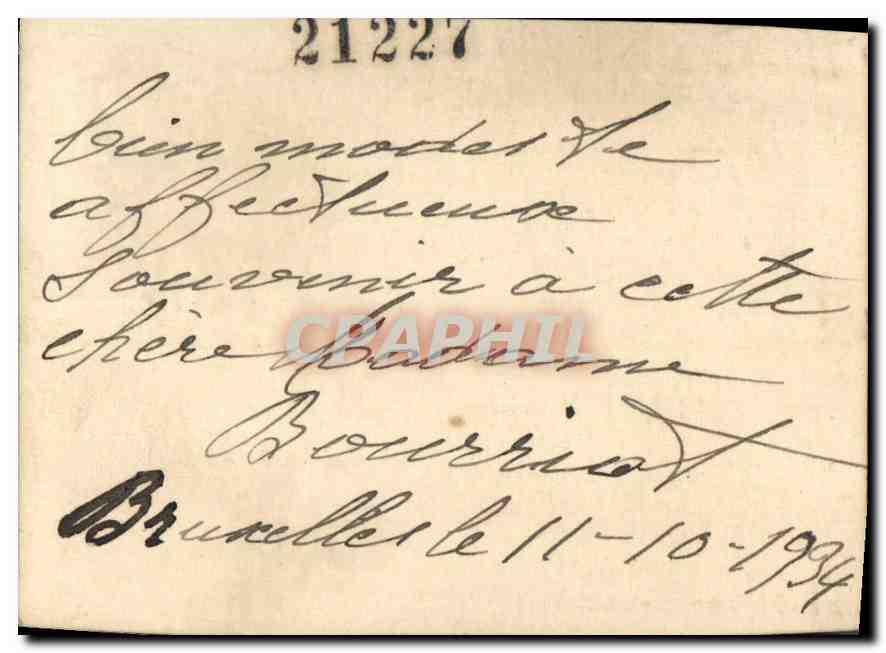 21227
bien modeste
affectueux
Souvenir à cette
chère Madame
CPAPHIL
Bourriot
Bruxelles le 11-10-1934